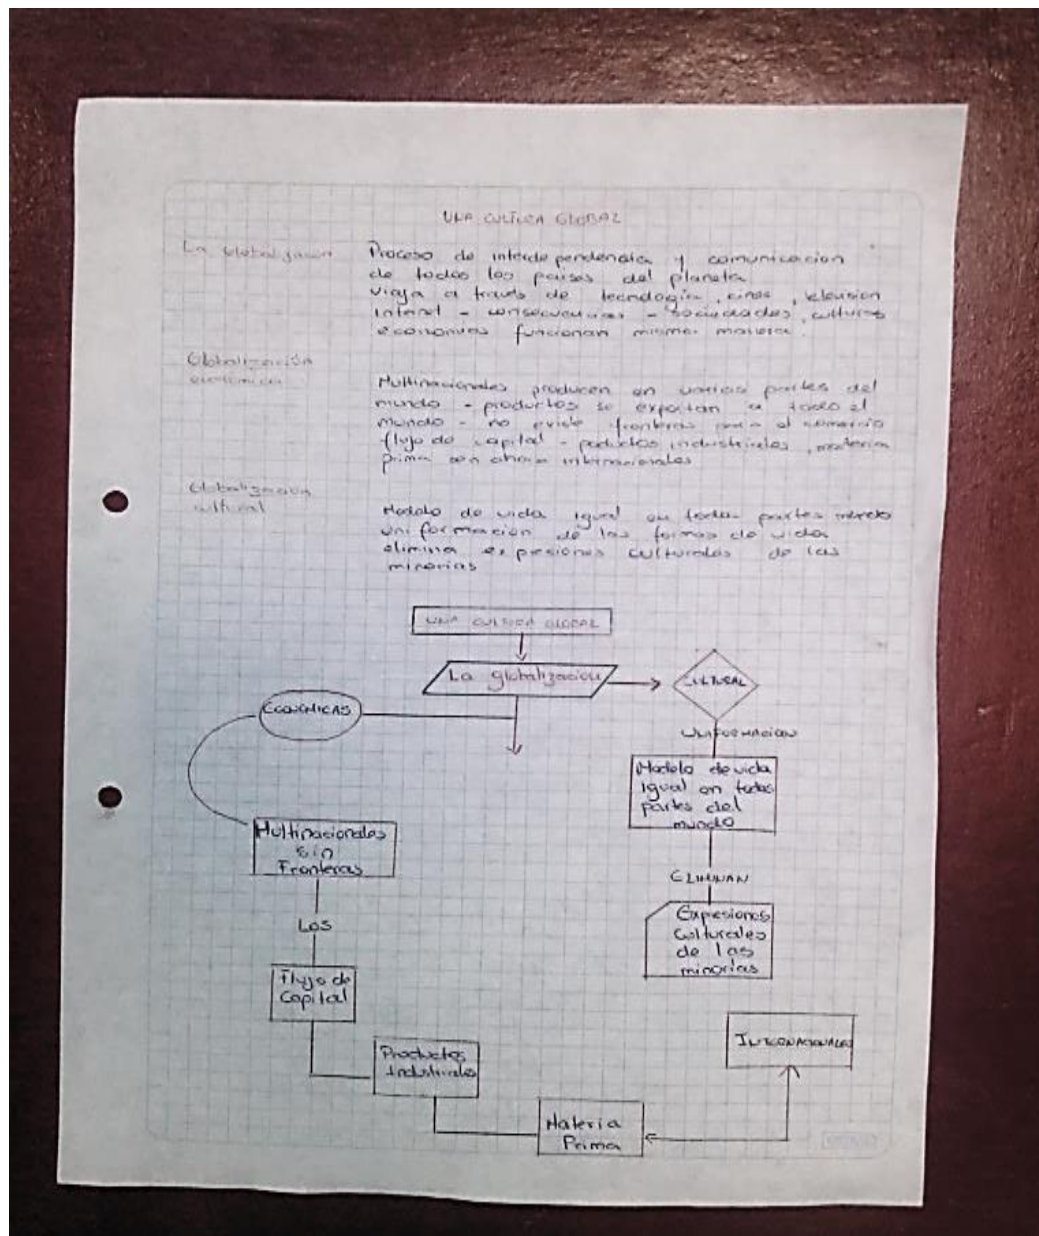 UNA CULTURA GLOBAL
La Globalización
Proceso de interdependencia y comunicacion
de todos los paises del planeta
viaja a través de tecnologia, cines, television
Internet - consecuencias - sociedades, culturas
economias funcionan misma manera.
Globalización
económica
Multinacionales producen en varias partes del
mundo - productos se exportan a todo el
mundo - no existe fronteras para el comercio
flujo de capital - poductos industriales, materia
prima son ahora internacionales
Globalización
cultural
Modelo de vida igual en todas partes
uniformacion de las formas de vida
elimina expresiones culturales de las
minorias
UNA CULTURA GLOBAL
La globalización
CULTURAL
ECONOMICAS
UNIFORMACION
Modelo de vida
igual en todas
partes del
mundo
Multinacionales
sin
Fronteras
ELIMINAN
Los
Expresiones
Culturales
de las
minorias
Flujo de
Capital
INTERNACIONALES
Productos
Industriales
Materia
Prima